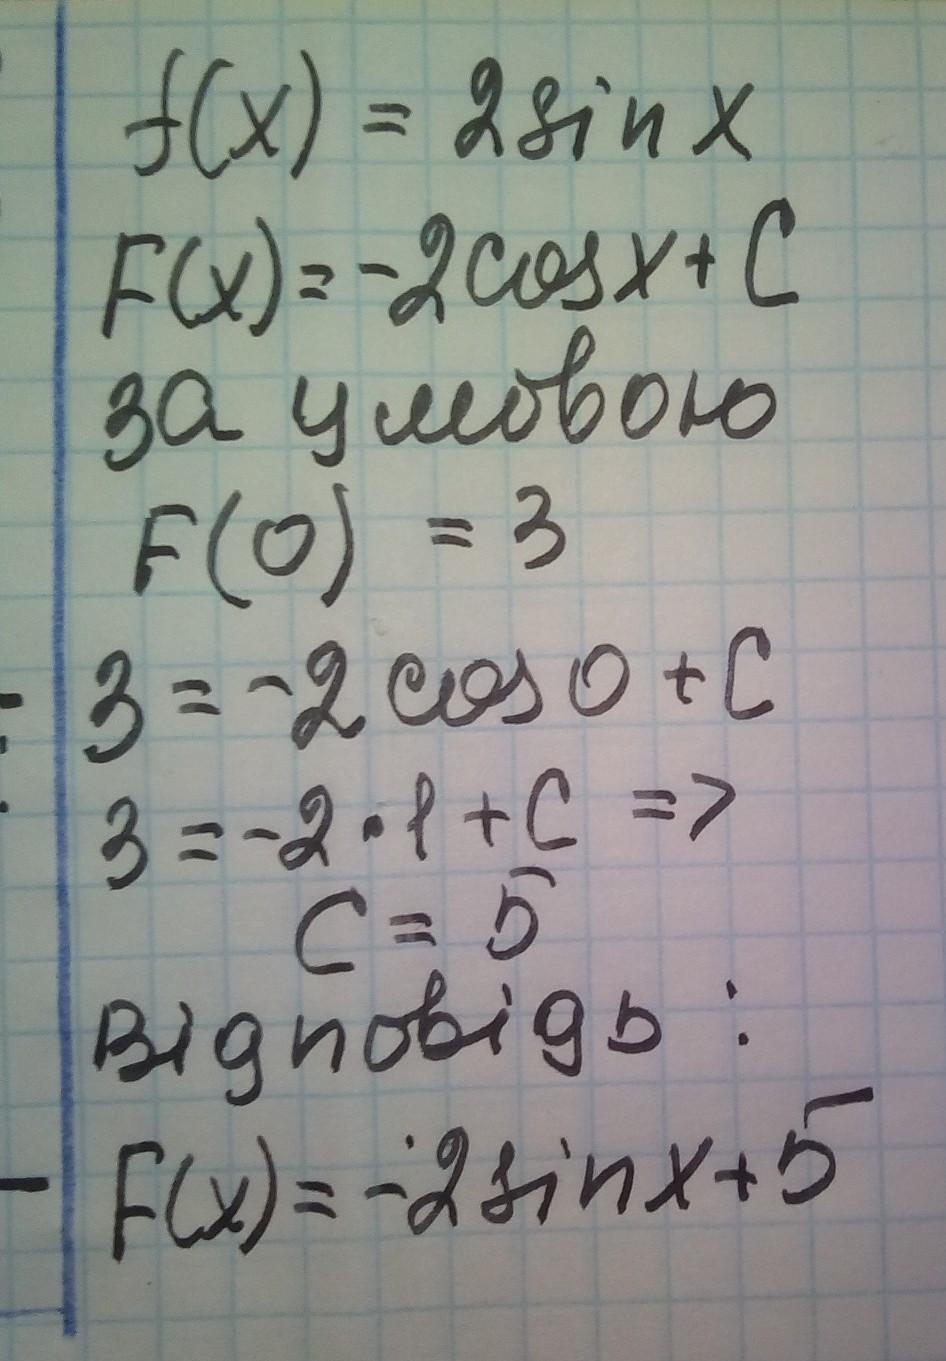 f(x) = 2sin x
F(x)=-2cosx+C
за умовою
F(0) = 3
3=-2cos0+C
3=-2·1+C =>
C = 5
Відповідь:
F(x)=-2sinx+5